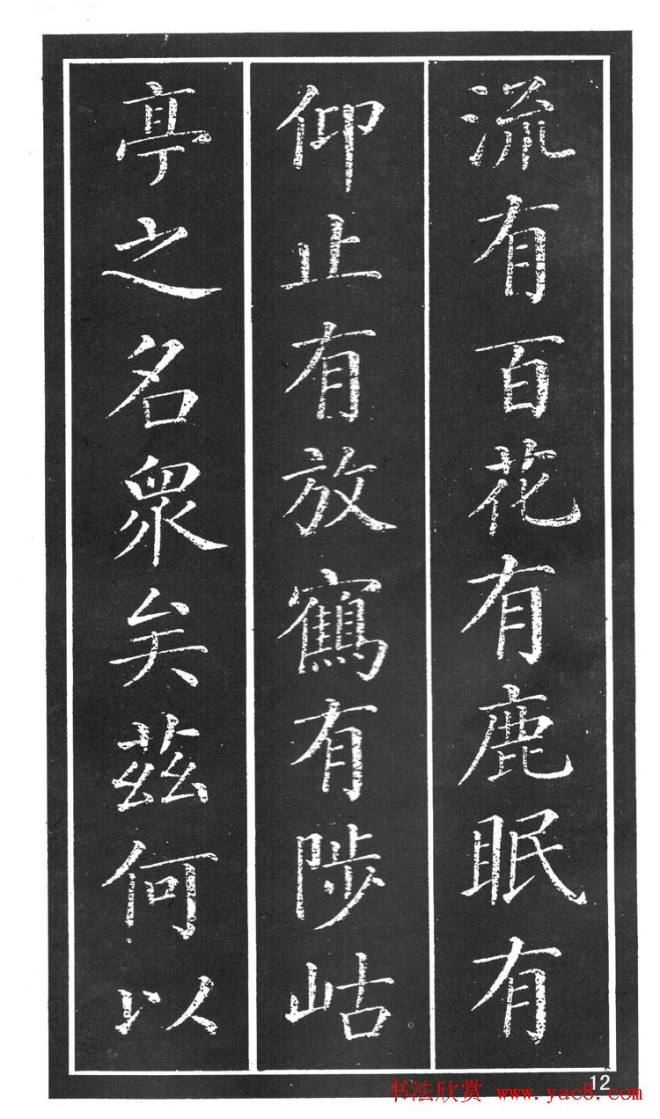 流有百花有鹿眠有
仰止有放鶴有陟岵
亭之名衆矣茲何以
12
书法欣赏 www.yac8.com